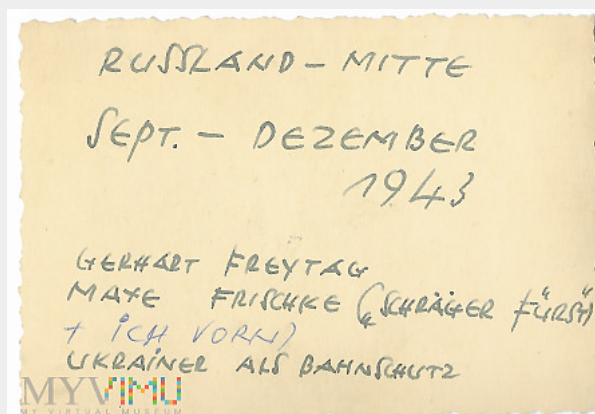 RUSSLAND – MITTE
SEPT. – DEZEMBER
1943
GERHART FREYTAG
MAYE FRISCHKE („SCHRÄGER FÜRST“)
+ ICH VORN)
UKRAINER ALS BAHNSCHUTZ
MYVIMU
MY VIRTUAL MUSEUM